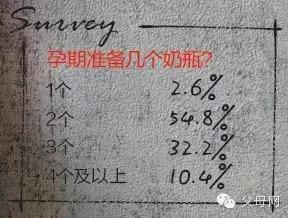 Survey
孕期准备几个奶瓶?
1个 2.6%
2个 54.8%
3个 32.2%
4个及以上 10.4%
父母网